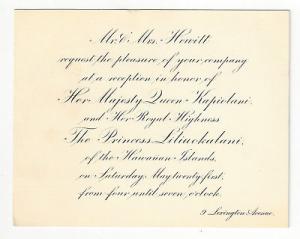 Mr. & Mrs. Hewitt
request the pleasure of your company
at a reception in honor of
Her Majesty Queen Kapiolani,
and Her Royal Highness
The Princess Liliuokalani,
of the Hawaiian Islands,
on Saturday, May twenty first,
from four until seven, o'clock.
9 Lexington Avenue.